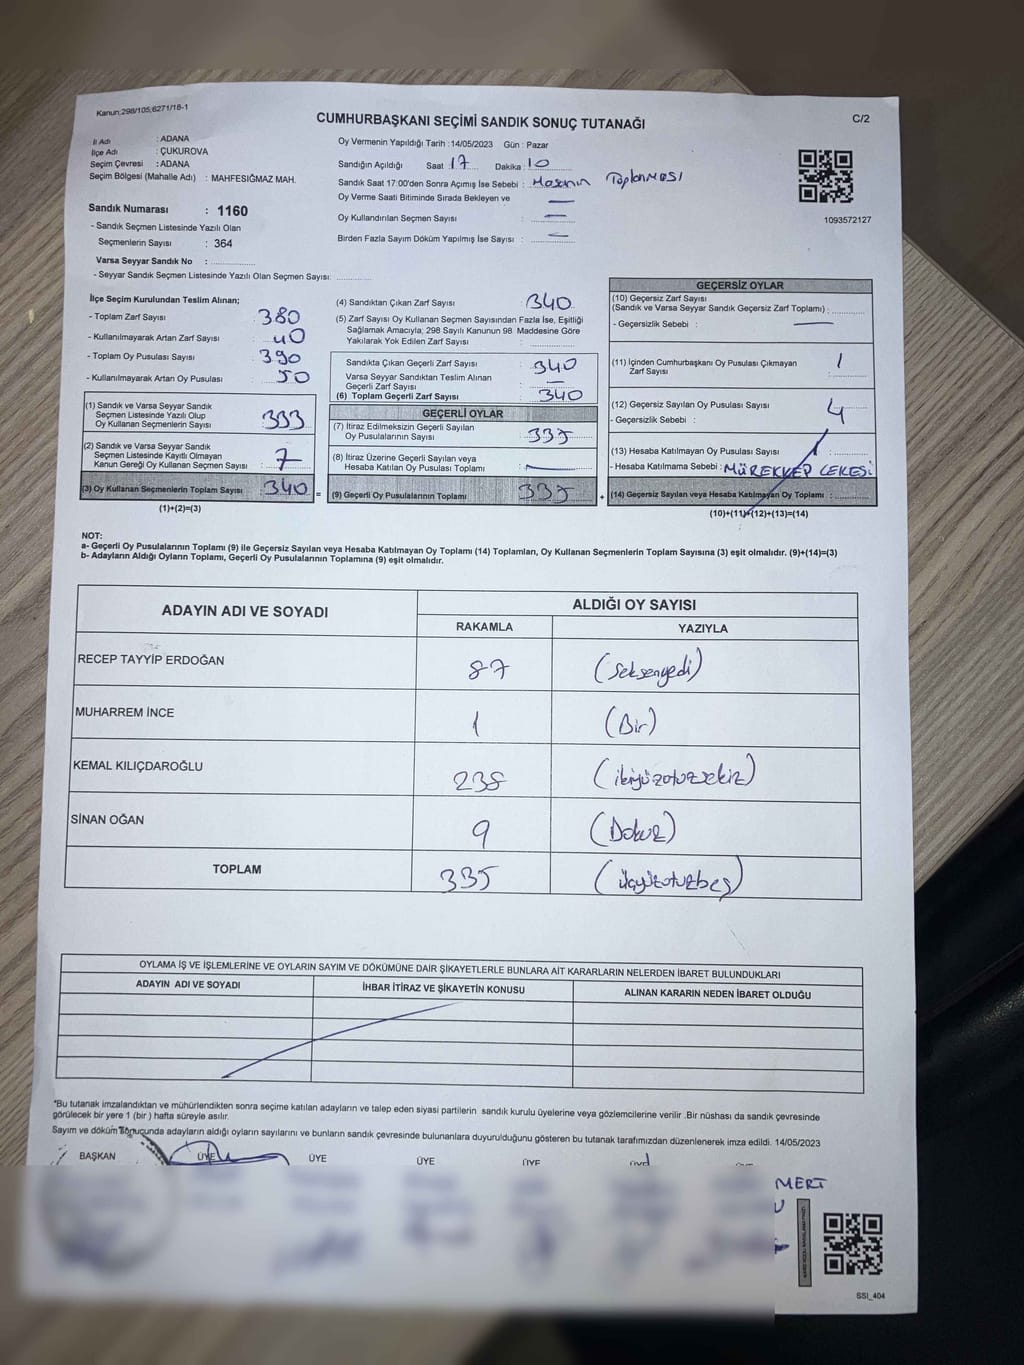 Kanun;298/105;6271/18-1
C/2
CUMHURBAŞKANI SEÇİMİ SANDIK SONUÇ TUTANAĞI
İl Adı : ADANA
İlçe Adı : ÇUKUROVA
Seçim Çevresi : ADANA
Seçim Bölgesi (Mahalle Adı) : MAHFESIĞMAZ MAH.
Sandık Numarası : 1160
- Sandık Seçmen Listesinde Yazılı Olan
Seçmenlerin Sayısı : 364
Varsa Seyyar Sandık No :
- Seyyar Sandık Seçmen Listesinde Yazılı Olan Seçmen Sayısı:
Oy Vermenin Yapıldığı Tarih : 14/05/2023 Gün : Pazar
Sandığın Açıldığı Saat 17 Dakika 10
Sandık Saat 17:00'den Sonra Açımış İse Sebebi : Masanın Toplanması
Oy Verme Saati Bitiminde Sırada Bekleyen ve —
Oy Kullandırılan Seçmen Sayısı : —
Birden Fazla Sayım Döküm Yapılmış İse Sayısı : —
1093572127
İlçe Seçim Kurulundan Teslim Alınan;
- Toplam Zarf Sayısı : 380
- Kullanılmayarak Artan Zarf Sayısı : 40
- Toplam Oy Pusulası Sayısı : 390
- Kullanılmayarak Artan Oy Pusulası : 50
(1) Sandık ve Varsa Seyyar Sandık
Seçmen Listesinde Yazılı Olup
Oy Kullanan Seçmenlerin Sayısı : 333
(2) Sandık ve Varsa Seyyar Sandık
Seçmen Listesinde Kayıtlı Olmayan
Kanun Gereği Oy Kullanan Seçmen Sayısı : 7
(3) Oy Kullanan Seçmenlerin Toplam Sayısı : 340 =
(1)+(2)=(3)
(4) Sandıktan Çıkan Zarf Sayısı : 340
(5) Zarf Sayısı Oy Kullanan Seçmen Sayısından Fazla İse, Eşitliği
Sağlamak Amacıyla; 298 Sayılı Kanunun 98 Maddesine Göre
Yakılarak Yok Edilen Zarf Sayısı :
Sandıkta Çıkan Geçerli Zarf Sayısı : 340
Varsa Seyyar Sandıktan Teslim Alınan
Geçerli Zarf Sayısı : —
(6) Toplam Geçerli Zarf Sayısı : 340
GEÇERLİ OYLAR
(7) İtiraz Edilmeksizin Geçerli Sayılan
Oy Pusulalarının Sayısı : 335
(8) İtiraz Üzerine Geçerli Sayılan veya
Hesaba Katılan Oy Pusulası Toplamı : —
(9) Geçerli Oy Pusulalarının Toplamı : 335 +
GEÇERSİZ OYLAR
(10) Geçersiz Zarf Sayısı
(Sandık ve Varsa Seyyar Sandık Geçersiz Zarf Toplamı) :
- Geçersizlik Sebebi : —
(11) İçinden Cumhurbaşkanı Oy Pusulası Çıkmayan
Zarf Sayısı : 1
(12) Geçersiz Sayılan Oy Pusulası Sayısı : 4
- Geçersizlik Sebebi :
(13) Hesaba Katılmayan Oy Pusulası Sayısı :
- Hesaba Katılmama Sebebi : MÜREKKEP LEKESİ
(14) Geçersiz Sayılan veya Hesaba Katılmayan Oy Toplamı :
(10)+(11)+(12)+(13)=(14)
NOT:
a- Geçerli Oy Pusulalarının Toplamı (9) ile Geçersiz Sayılan veya Hesaba Katılmayan Oy Toplamı (14) Toplamları, Oy Kullanan Seçmenlerin Toplam Sayısına (3) eşit olmalıdır. (9)+(14)=(3)
b- Adayların Aldığı Oyların Toplamı, Geçerli Oy Pusulalarının Toplamına (9) eşit olmalıdır.
ADAYIN ADI VE SOYADI
ALDIĞI OY SAYISI
RAKAMLA YAZIYLA
RECEP TAYYİP ERDOĞAN 87 (Seksenyedi)
MUHARREM İNCE 1 (Bir)
KEMAL KILIÇDAROĞLU 238 (ikiyüzotuzsekiz)
SİNAN OĞAN 9 (Dokuz)
TOPLAM 335 (üçyüzotuzbeş)
OYLAMA İŞ VE İŞLEMLERİNE VE OYLARIN SAYIM VE DÖKÜMÜNE DAİR ŞİKAYETLERLE BUNLARA AİT KARARLARIN NELERDEN İBARET BULUNDUKLARI
ADAYIN ADI VE SOYADI İHBAR İTİRAZ VE ŞİKAYETİN KONUSU ALINAN KARARIN NEDEN İBARET OLDUĞU
*Bu tutanak imzalandıktan ve mühürlendikten sonra seçime katılan adayların ve talep eden siyasi partilerin sandık kurulu üyelerine veya gözlemcilerine verilir .Bir nüshası da sandık çevresinde
görülecek bir yere 1 (bir ) hafta süreyle asılır.
Sayım ve döküm sonucunda adayların aldığı oyların sayılarını ve bunların sandık çevresinde bulunanlara duyurulduğunu gösteren bu tutanak tarafımızdan düzenlenerek imza edildi. 14/05/2023
BAŞKAN ÜYE ÜYE ÜYE
MERT
SSI_404